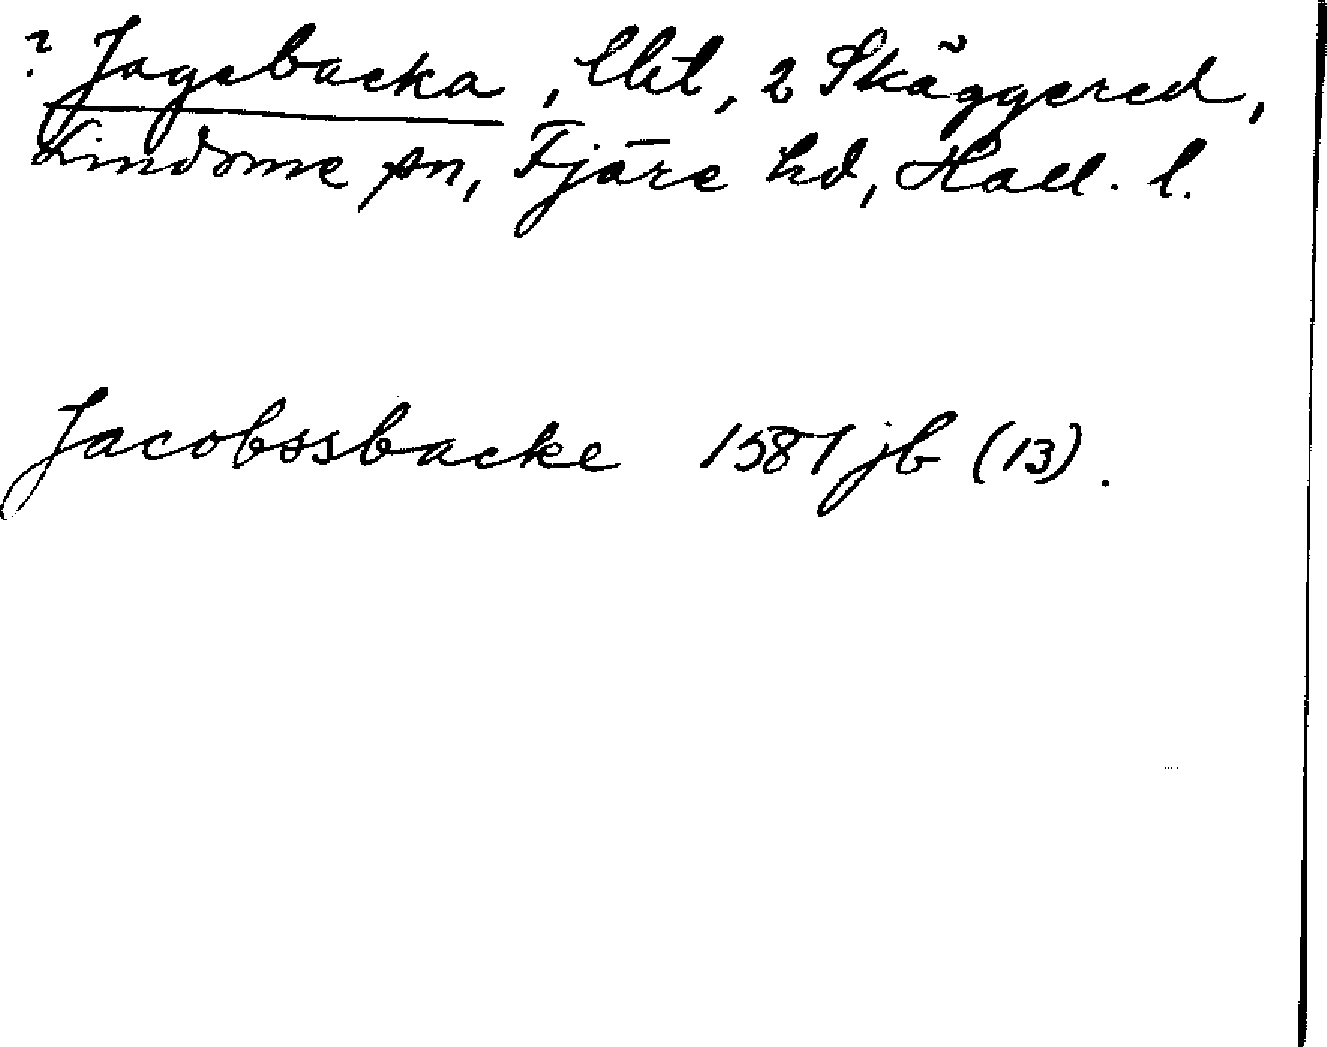 ? Jagebacka, lht, 2 Skäggered,
Lindome sn, Fjäre hd, Hall. l.
Jacobssbacke 1581 jb (13).